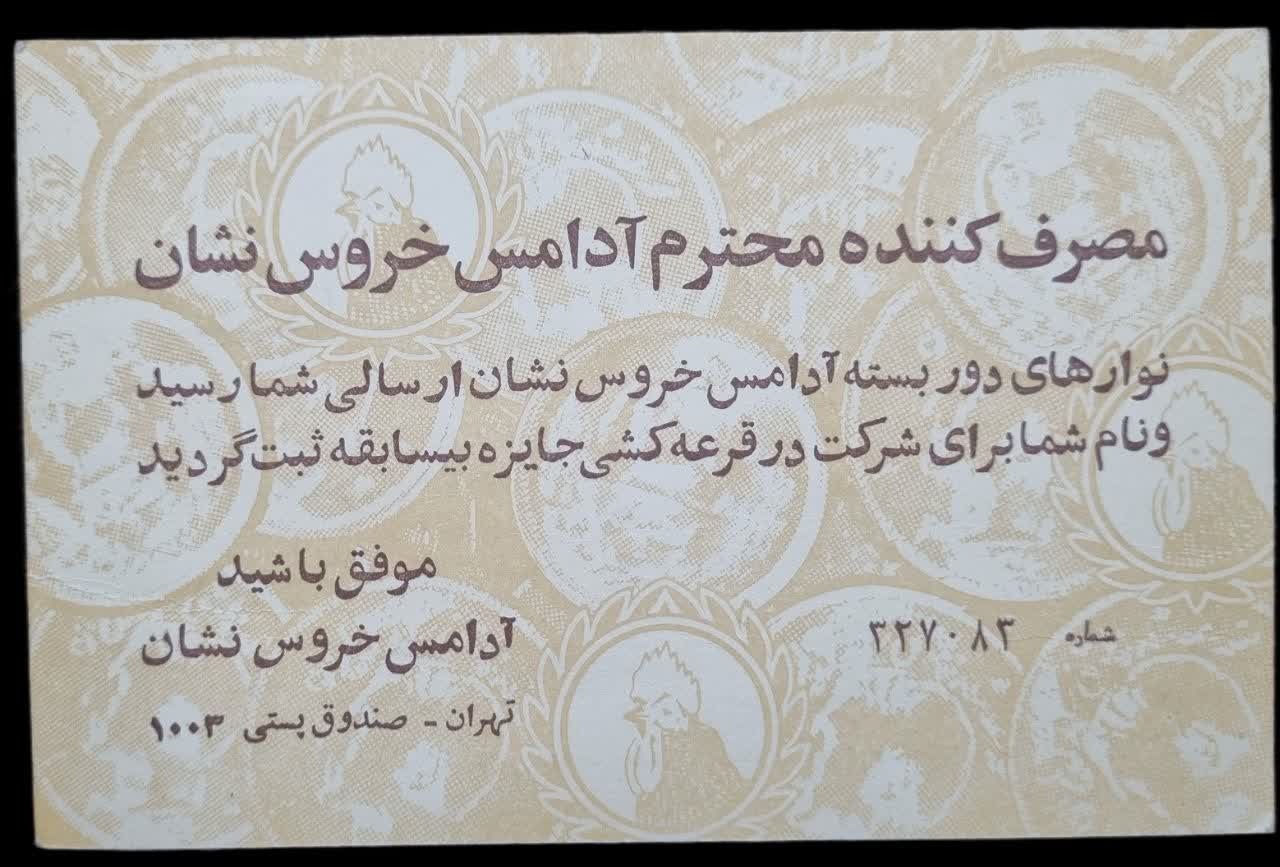 مصرف کننده محترم آدامس خروس نشان
نوارهای دور بسته آدامس خروس نشان ارسالی شما رسید
و نام شما برای شرکت در قرعه کشی جایزه بیسابقه ثبت گردید
موفق باشید
آدامس خروس نشان
تهران - صندوق پستی ۱۰۰۳
شماره ۳۲۷۰۸۳